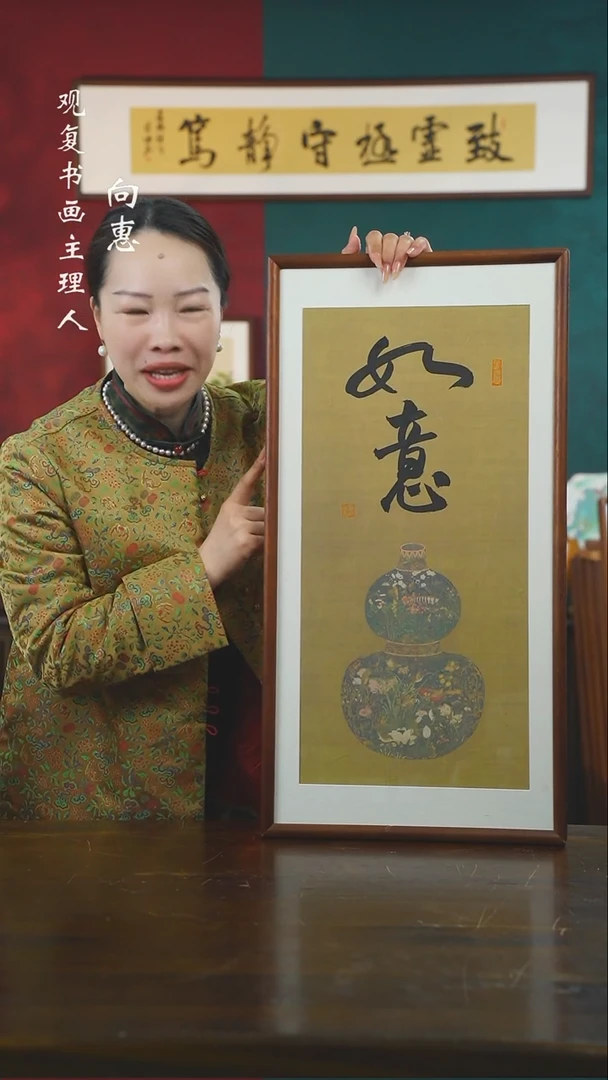 观复书画主理人
向惠
致虚极守静笃
如意